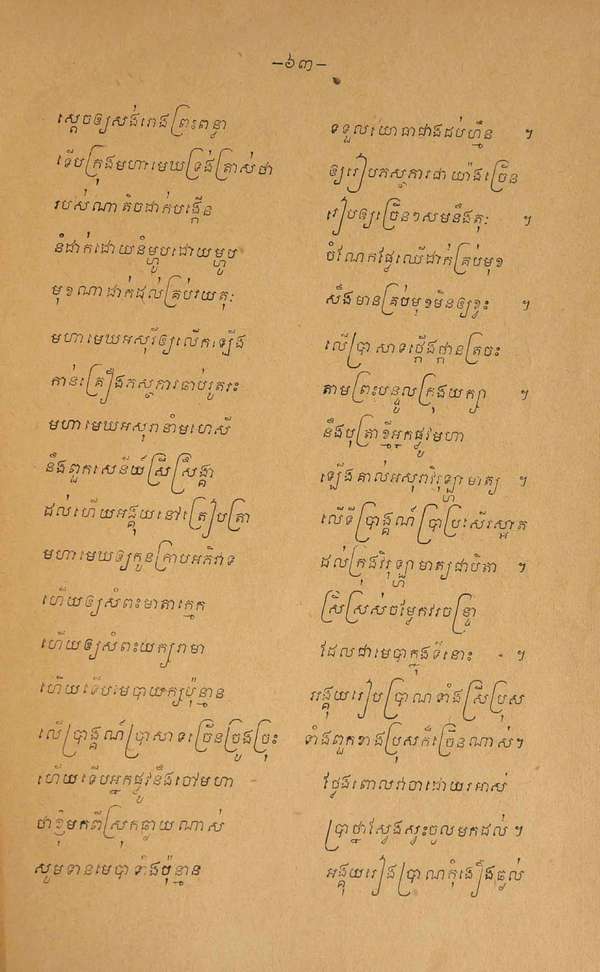 –៦៣–
ស្ដេចឲ្យសង់រោងព្រះពន្លា ទទួលយោធាជាងដប់ហ្មឺន ។
ទើបក្រុងមហាមេឃទ្រង់ត្រាស់ថា ឲ្យរៀបភស្ដុភារជា យ៉ាងច្រើន
របស់ណាតិចដាក់បង្កើន រៀបឲ្យច្រើនៗសមនឹងគុៈ ។
នំដាក់ដោយនំម្ហូបដោយម្ហូប ចំណែកផ្លែឈើដាក់គ្រប់មុខ
មុខណាដាក់ដល់គ្រប់រយគុៈ សឹងមានគ្រប់មុខមិនឲ្យខ្វះ ។
មហាមេឃអសុរីឲ្យលើកឡើង លើប្រាសាទថ្កើងថ្កានត្រចះ
កាន់គ្រឿងភស្ដុភារជាប់រួតរះ តាមព្រះបន្ទូលក្រុងយក្សា ។
មហាមេឃអសុរានាំមហេសី នឹងបុត្រាខ្ញីអ្នកផ្លូវមហា
នឹងពួកសេនីយ៍ស្រីស្រឹង្គា ឡើងគាល់អសុរាវិរុឡ្ហាមាត្យ ។
ដល់ហើយអង្គុយនៅត្រៀបត្រា លើទីប្រាង្គណ៍ប្រាប្រិះសើរស្អាត
មហាមេឃឲ្យកូនក្រាបអភិវាទ ដល់ក្រុងវិរុឡ្ហាមាត្យជាបិតា ។
ហើយឲ្យសំពះមាតាក្មេក ស្រីស្រស់ចម្លែកវរចន្ទ្រា
ហើយឲ្យសំពះយក្សរាមា ដែលជាមេបាក្នុងទីនោះ ។
ហើយទើបមេបាយក្សប៉ុន្មាន អង្គុយរៀបប្រាណទាំងស្រីប្រុស
លើប្រាង្គណ៍ប្រាសាទច្រើនច្រូងច្រុះ ទាំងពួកខាងប្រុសក៏ច្រើនណាស់។
ហើយទើបអ្នកផ្លូវនឹងចៅមហា ថ្លែងពោលវាចាដោយរអាស់
ថាខ្ញុំមកពីស្រុកឆ្ងាយណាស់ ប្រាថ្នាស្វែងស្វះចូលមកដល់ ។
សូមទានមេបាទាំងប៉ុន្មាន អង្គុយរៀងប្រាណកុំងឿងឆ្ងល់